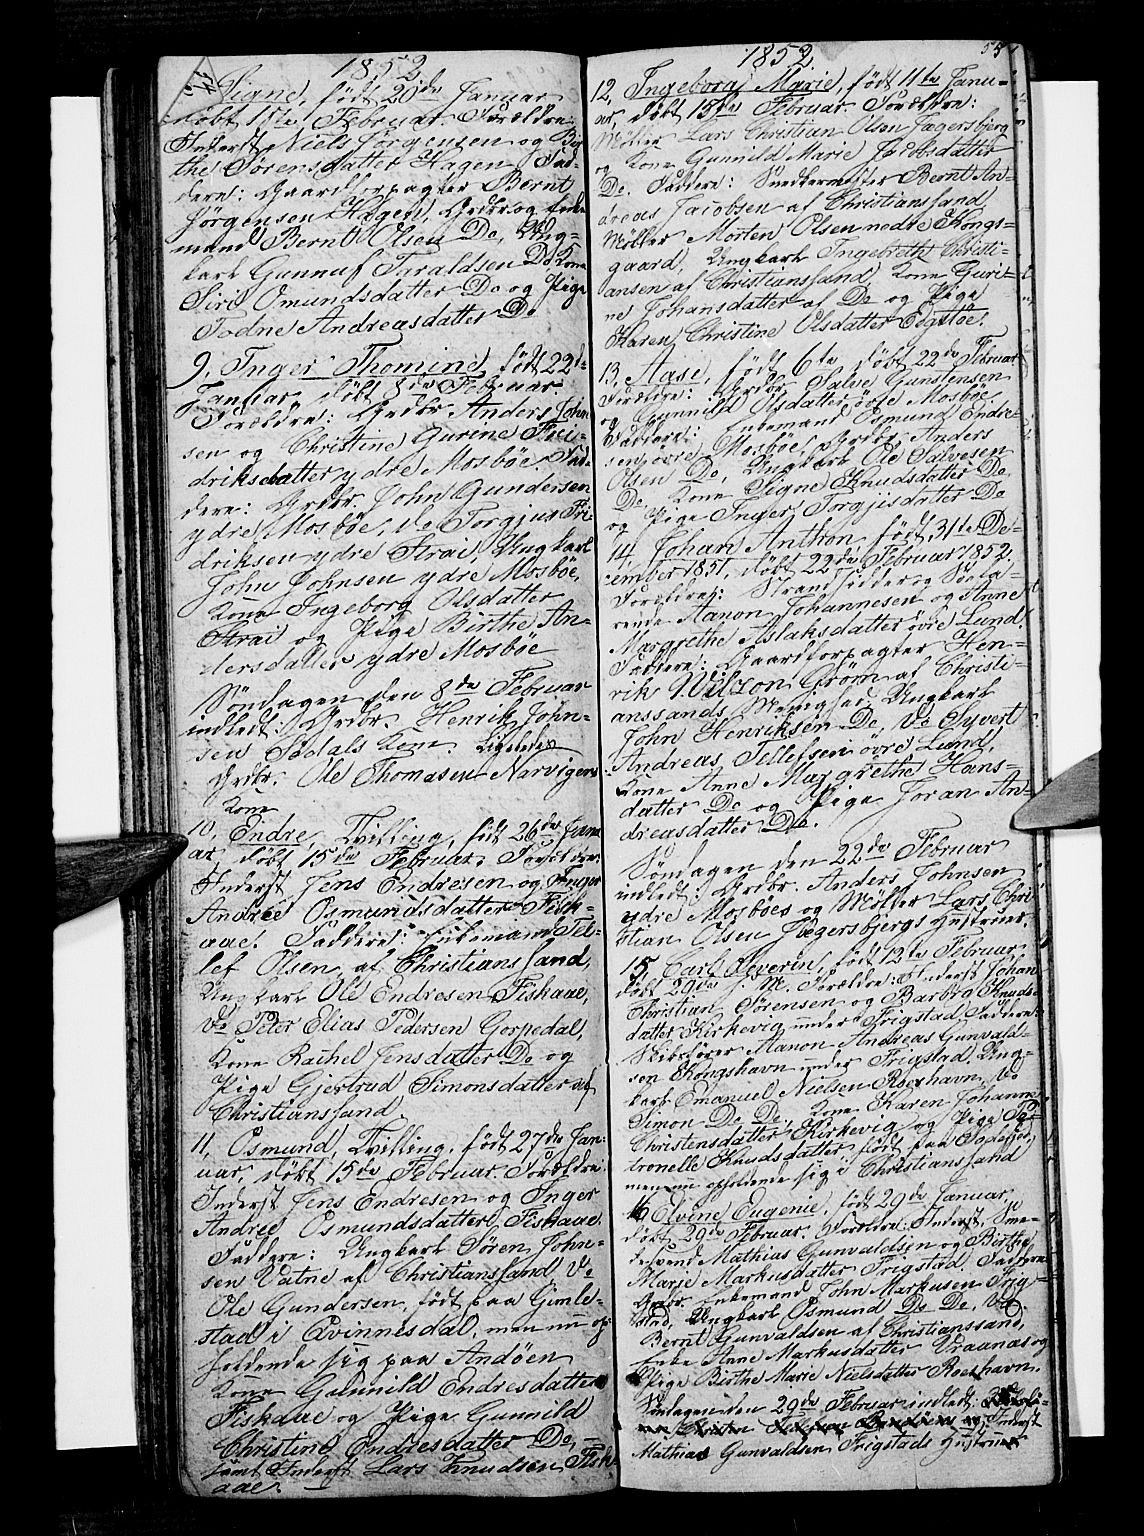 1852
Signe, født 20de Januar
døbt 11te Februar. Forældre:
Inderst Niels Jørgensen og Bir-
the Sørensdatter Hagen. Fad-
dere: Gaardforpagter Bernt
Jørgensen Hagen, Grdbr. og Enke-
mand Bernt Olsen Do, Ung-
karl Gunnuf Taraldsen Do Kone
Siri Omundsdatter Do og Pige
Todne Andreasdatter Do
9, Inger Thomine, født 22de
Januar, døbt 8de Februar.
Forældre: Grdbr. Anders John-
sen og Christine Gurine Fre-
driksdatter ydre Mosbøe. Fad-
dere: Grdbr John Gundersen
ydre Mosbøe, do Torgjus Fri-
driksen ydre Strai, Ungkarl
John Johnsen ydre Mosbøe,
Kone Ingeborg Olsdatter
Strai og Pige Birthe An-
dersdatter ydre Mosbøe
Søndagen den 8de Februar
indledt: Grdbr. Henrik John-
sen Sødals Kone. Ligeledes
Grdbr. Ole Thomasen Narvigens
Kone
10, Endre, Tvilling, født 26de Janu-
ar, døbt 15de Februar. Forældre:
Inderst Jens Endresen og Inger
Andree Osmundsdatter Fisk-
aae. Faddere: Enkemand Tel-
lef Olsen af Christianssand,
Ungkarl Ole Endresen Fiskaae,
Do Peter Elias Pedersen Gorpedal,
Kone Rachel Jensdatter Do og
Pige Gjertrud Simonsdatter af
Christianssand.
11, Osmund, Tvilling, født 27de Jan-
uar, døbt 15de Februar. Forældre:
Inderst Jens Endresen og Inger
Andree Osmundsdatter Fiskaae.
Faddere: Ungkarl Søren John-
sen Vatne af Christianssand Do
Ole Gundersen, født paa Gimle-
stad i Qvinnesdal, men nu op-
holdende sig paa Andøen
Kone Gunnild Endresdatter
Fiskaae og Pige Gunnild
Christine Endresdatter Do,
samt Inderst Lars Knudsen Fisk-
aae.
1852
55
12, Ingeborg Marie, født 11te Janu-
ar, døbt 15de Februar. Forældre:
Møller Lars Christian Olsen Jægersbjerg
og Kone Gunnild Marie Jacobsdatter
Do. Faddere: Snedkermester Bernt An-
dreas Jacobsen af Christianssand,
Møller Morten Olsen nedre Kongs-
gaard, Ungkarl Ingebreth Christi-
ansen af Christianssand Kone Guri-
ne Johansdatter af Do og Pige
Karen Christine Olsdatter Eegstøe.
13, Aase, født 6te, døbt 22de Februar
Forældre: Grdbr Salve Gunstensen
og Gunnild Olsdatter øvre Mosbøe.
Faddere: Enkemand Osmund Endre-
sen øvre Mosbøe, Grdbr. Anders
Olsen Do, Ungkarl Ole Salvesen
Do Kone Signe Knudsdatter Do
og Pige Inger Torgjisdatter Do
14, Johan Anthon, født 31te De-
cember 1851, døbt 22de Februar 1852.
Forældre: Strandsidder og Søefa-
rende Aanon Johannesen og Anne
Margrethe Aslaksdatter øvre Lund
Faddere: Gaardforpagter Hen-
rik Wilson Grøm af Christi-
anssands Menighed Ungkarl
John Henriksen Do, Do Syvert
Andreas Tellefsen øvre Lund,
Kone Anne Margrethe Hans-
datter Do og Pige Joran An-
dreasdatter Do.
Søndagen den 22de Februar
indledt Grdbr. Anders Johnsen
ydre Mosbøes og Møller Lars Chri-
stian Olsen Jægersbjergs Hustruer.
15, Carl Severin, født 12te Februar
døbt 29de s. M. Forældre: Inderst Johan
Christian Sørensen og Barbro Knuds-
datter Kirkevig under Frigstad Faddere:
Aanon Andreas Gunvald-
sen Kongshavn under Frigstad, Ung-
karl Emanuel Nielsen Roeshavn, Do
Simon Do Do, Kone Karen Johanne
Christensdatter Kirkevig og Pige Pe-
tronelle Knudsdatter, født paa
men nu opholdende sig i Christianssand
16 Elvine Eugenie, født 29de Januar
døbt 29de Februar. Forældre: Inderst, Sme-
desvend Mathias Gunvaldsen og Birthe
Marie Markusdatter Frigstad, Faddere
Grdbr. Enkemand John Markusen Frig-
stad, Ungkarl Osmund Do Do, Do
Bernt Gunvaldsen af Christianssand,
Enke Anne Markusdatter Vraanas og
Pige Birthe Marie Nielsdatter Roeshavn.
Søndagen den 29de Februar indledt
og Inderst
Mathias Gunvaldsen Frigstads Hustruer